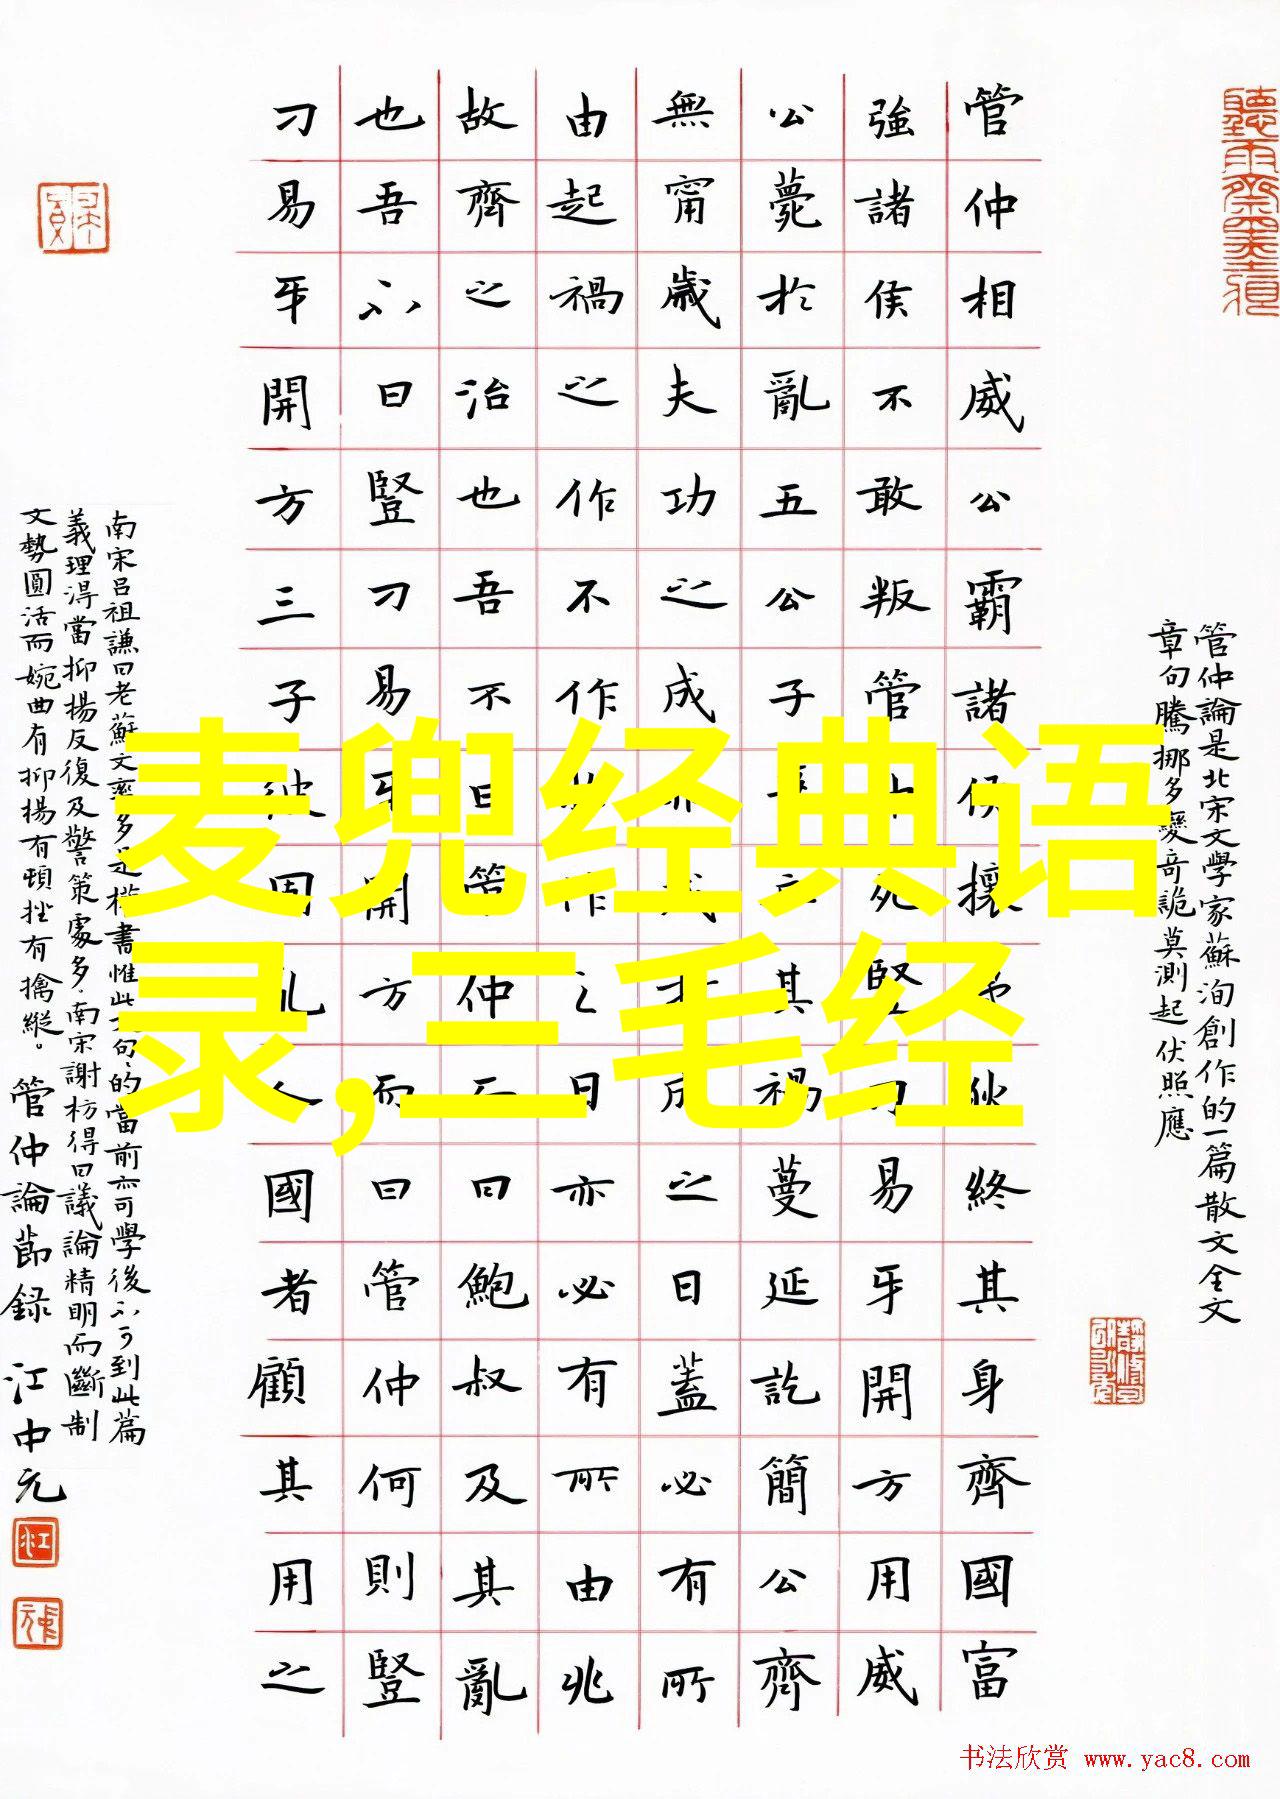 管仲論是北宋文學家蘇洵創作的一篇散文全文
章句騰挪多變奇詭莫測起伏照應
管仲相威公霸諸侯攘夷狄終其身齊國富
強諸侯不敢叛管仲死豎刁易牙開方用威
公薨於亂五公子爭立其禍蔓延訖簡公齊
無甯歲夫功之成非成於成之日蓋必有所
由起禍之作不作於作之日亦必有所由兆
故齊之治也吾不曰管仲而曰鮑叔及其亂
也吾不曰豎刁易牙開方而曰管仲何則豎
刁易牙開方三子彼固亂人國者顧其用之
南宋呂祖謙曰老蘇文多是權書惟此文句的當前亦可學後不可到此篇
義理淂當抑揚反復及警策處多南宋謝枋得曰議論精明而斷制
文勢圓活而婉曲有抑揚有頓挫有擒縱。管仲論節録 江中元
麦兜经典语
录,三毛经
书法欣赏 www.yac8.com